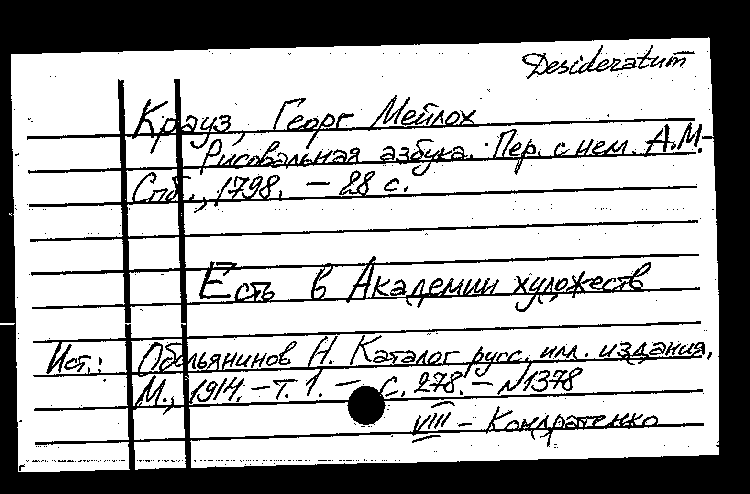 Desideratum
Крауз, Георг Мейлох
Рисовальная азбука. Пер. с нем. А.М.-
Спб., 1798. – 28 с.
Есть в Академии художеств
Ист.: Обольянинов Н. Каталог русс. илл. издания,
М., 1914. – Т. 1. – с. 278. – №1378
VIII – Кондратенко